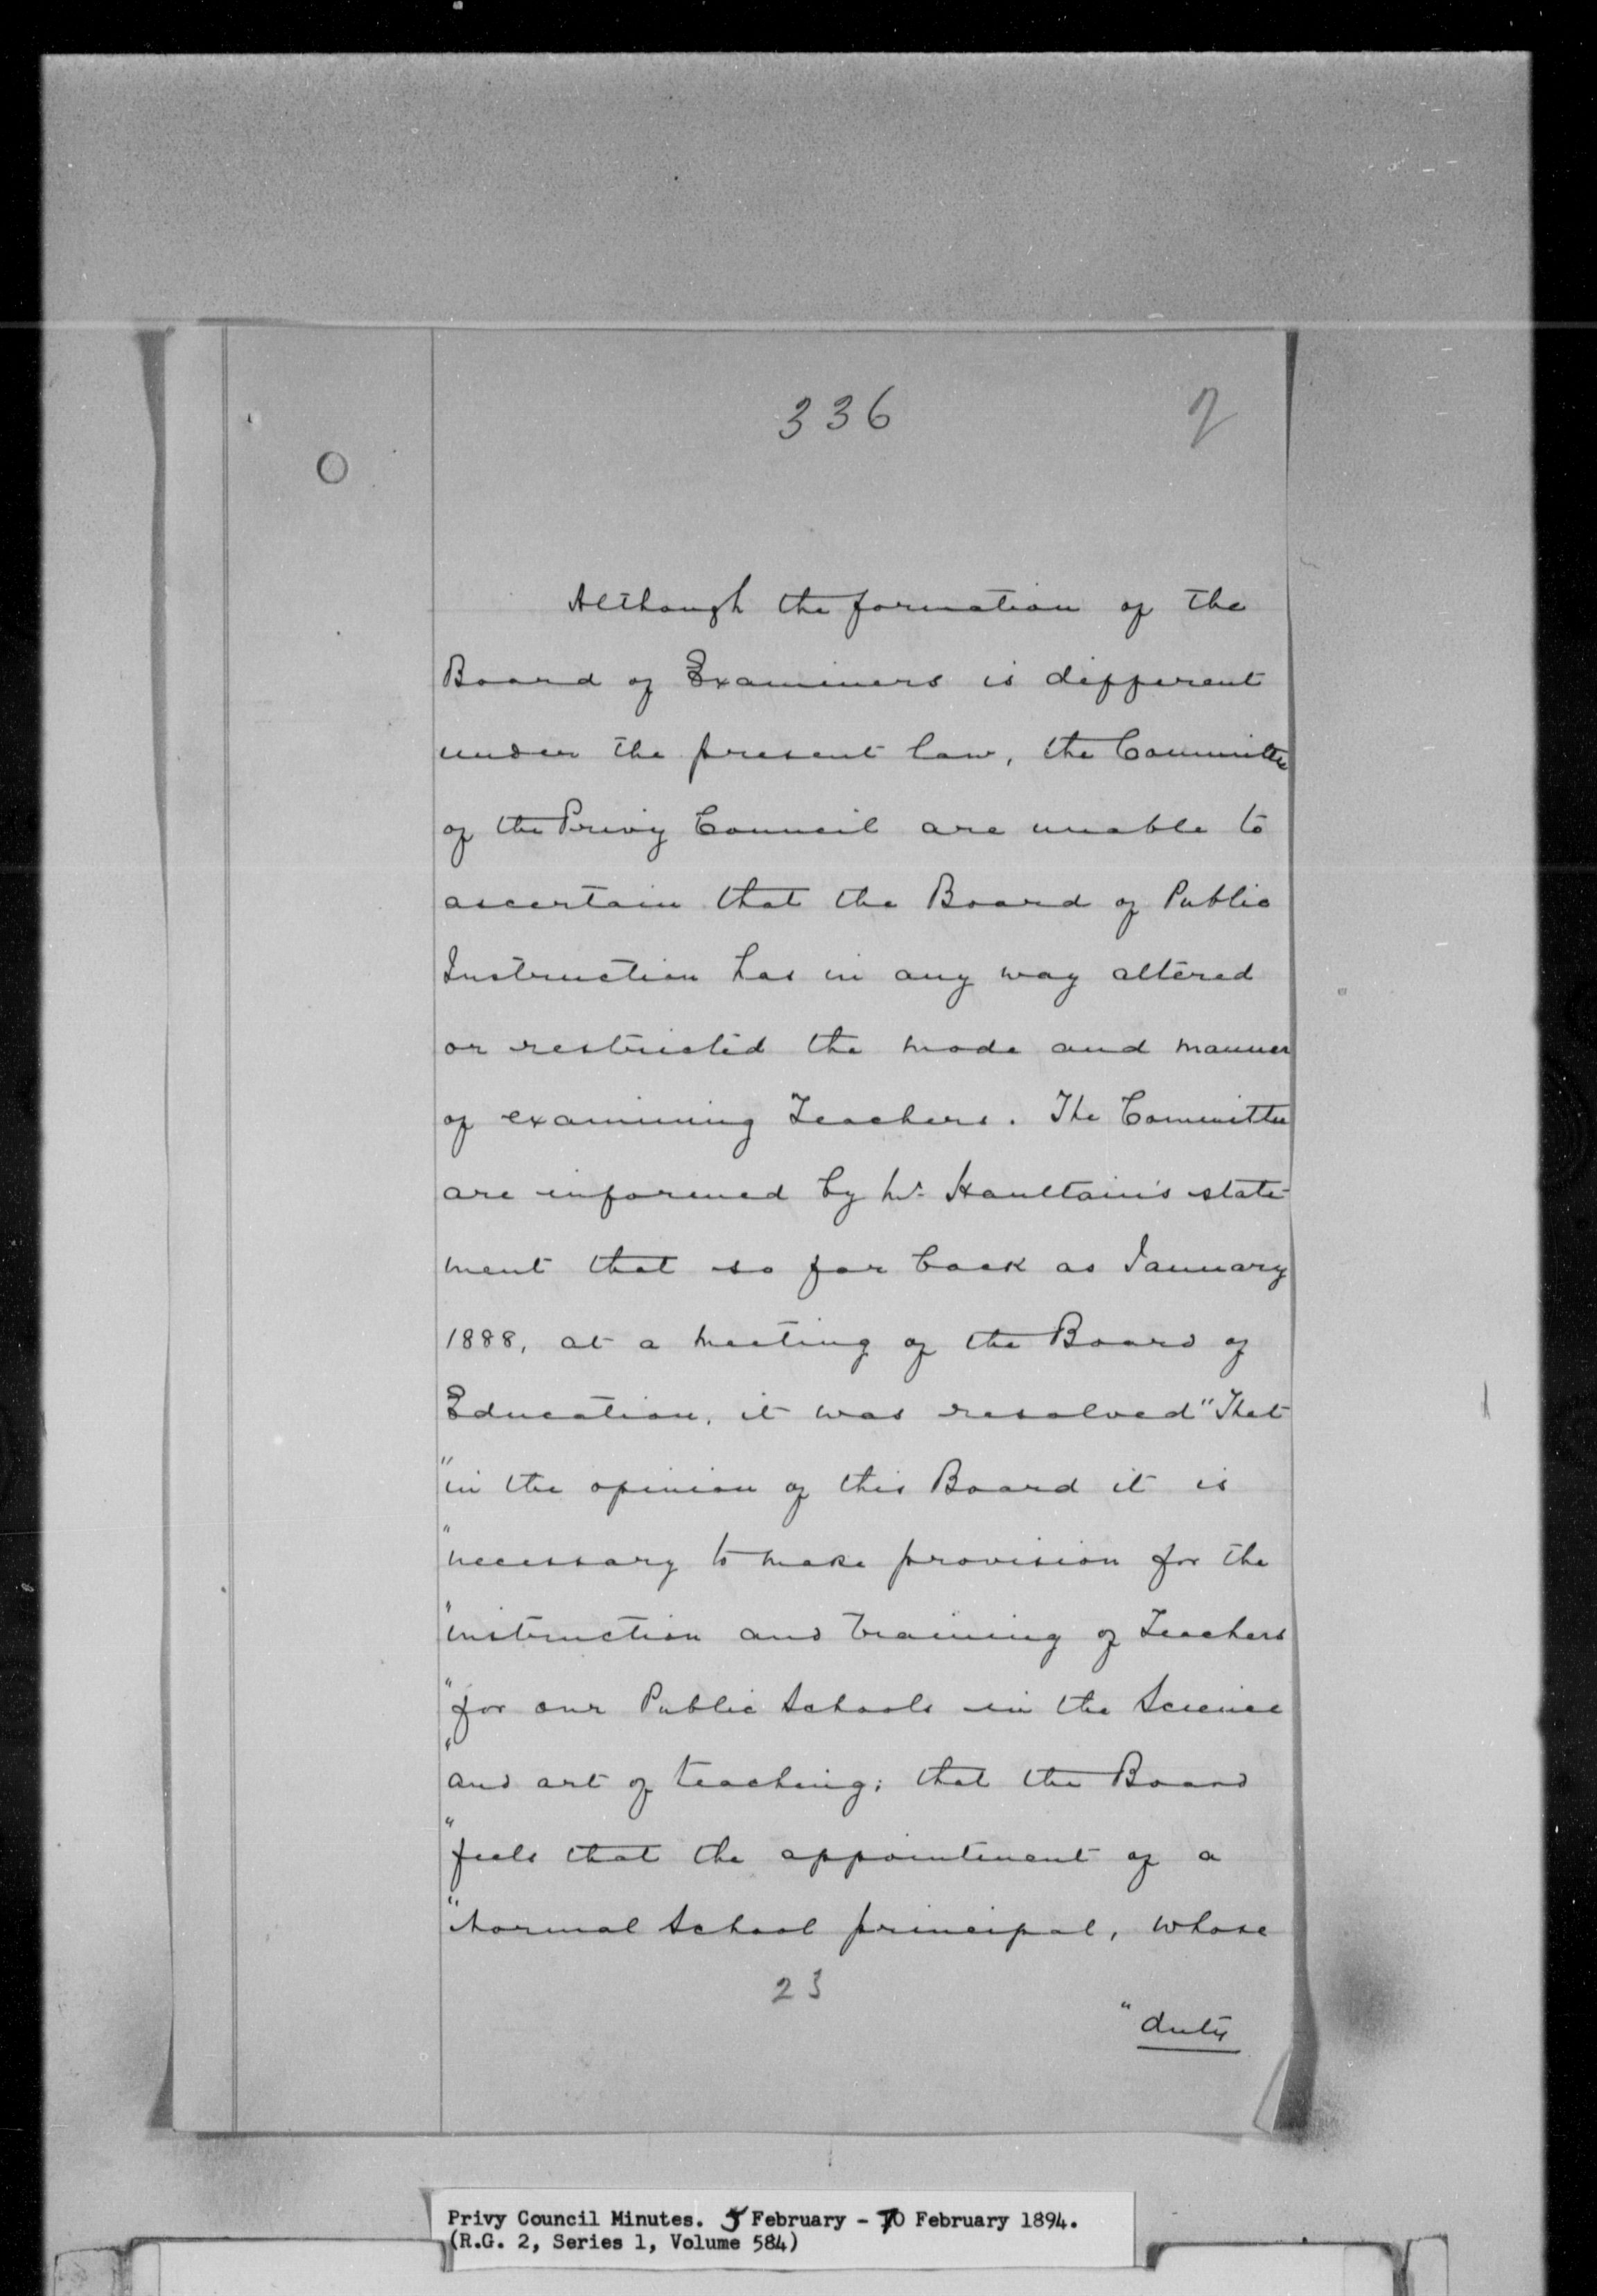 336
Although the formation of the
Board of Examiners is different
under the present law, the Committee
of the Privy Council are unable to
ascertain that the Board of Public
Instruction has in any way altered
or restricted the mode and manner
of examining Teachers. The Committee
are informed by Mr. Haultain's state-
ment that so far back as January
1888, at a meeting of the Board of
Education, it was resolved "That
"in the opinion of this Board it is
"necessary to make provision for the
"instruction and training of Teachers
"for our Public Schools in the Science
"and art of teaching; that the Board
"feels that the appointment of a
"Normal School principal, whose
23
"duty
Privy Council Minutes. 5 February - 10 February 1894.
(R.G. 2, Series 1, Volume 584)